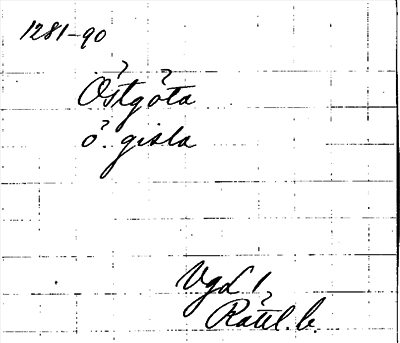 1281-90
Östgöta
ö. gisla
VgL 1,
Rätl. b.